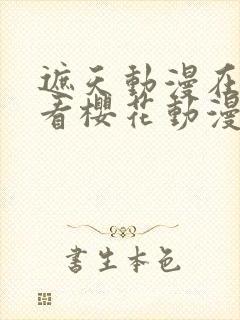 遮天動漫在
看櫻花動漫
書生本色